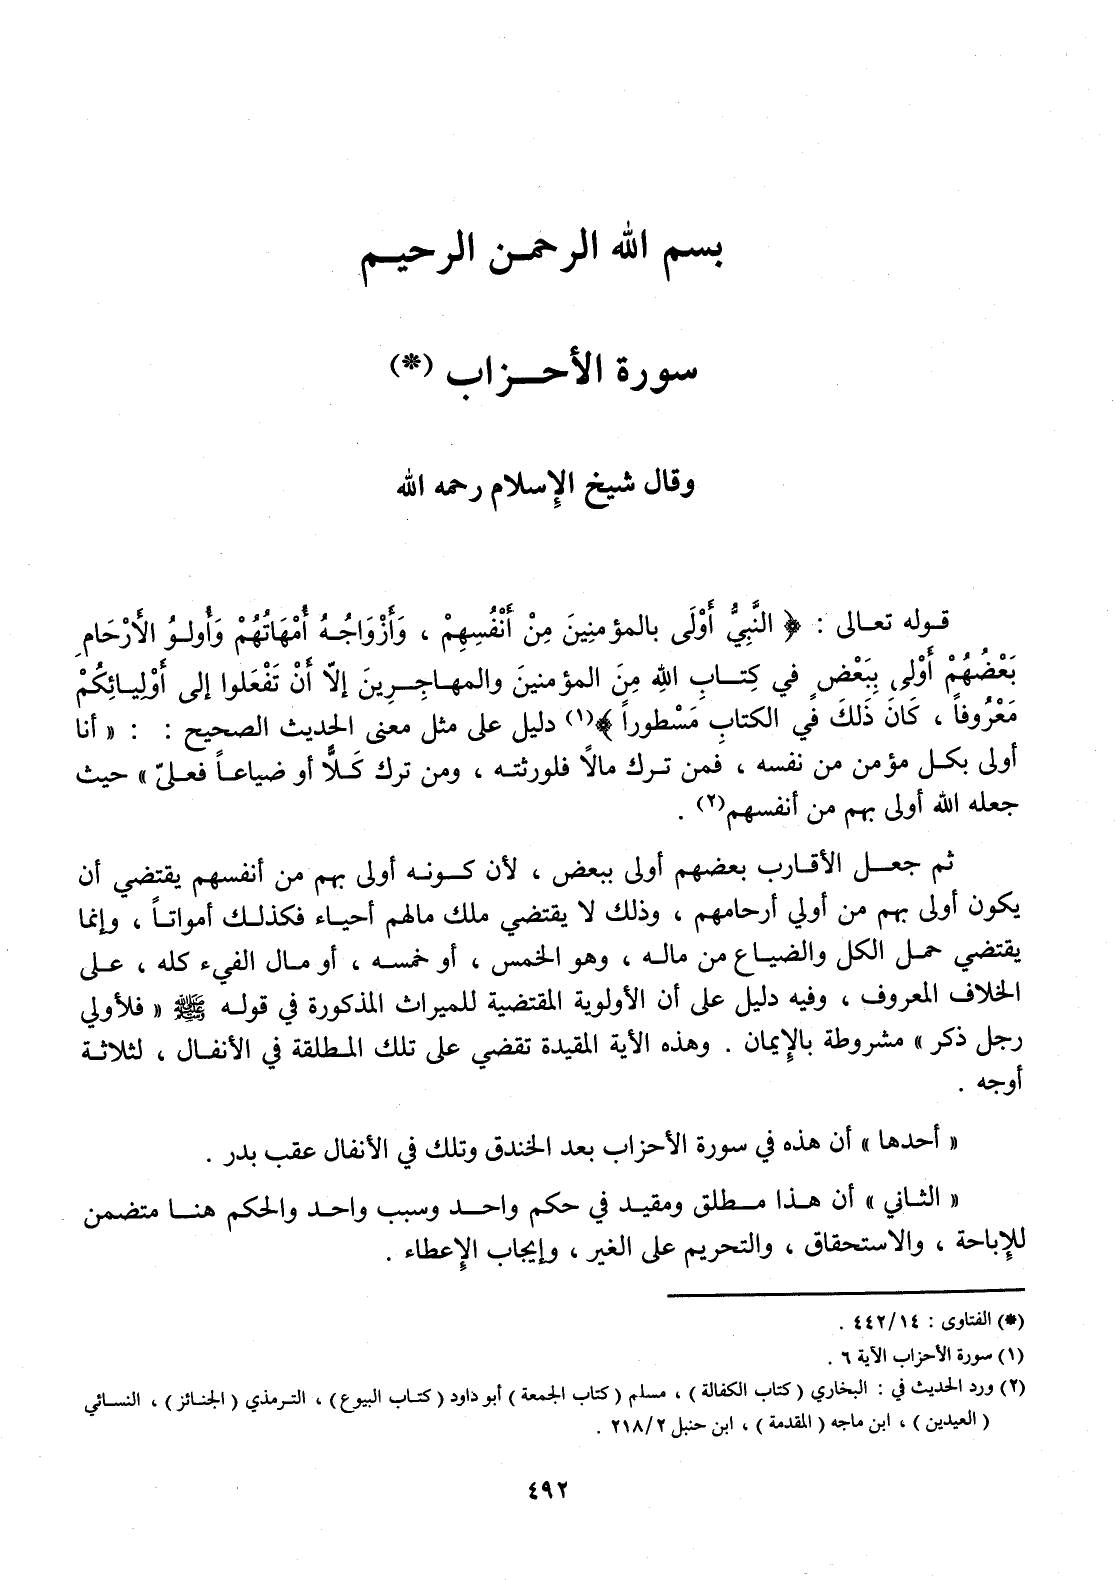 بسم الله الرحمن الرحيم
سورة الأحزاب (*)
وقال شيخ الإسلام رحمه الله
قوله تعالى : ﴿ النَّبِيُّ أَوْلَى بالمؤمنِينَ مِنْ أَنْفُسِهِمْ ، وَأَزْوَاجُهُ أُمْهَاتُهُمْ وَأُولو الأرْحَامِ
بَعْضُهُمْ أَوْلى بِبَعْضٍ في كِتابِ اللهِ مِنَ المؤمنينَ والمهاجِرِينَ إلاّ أَنْ تَفْعَلوا إلى أَوْلِيائِكُمْ
مَعْرُوفاً ، كَانَ ذَلكَ في الكتابِ مَسْطوراً ﴾(١) دليل على مثل معنى الحديث الصحيح : : « أنا
أولى بكل مؤمن من نفسه ، فمن ترك مالاً فلورثته ، ومن ترك كَلاًّ أو ضياعاً فعليّ » حيث
جعله الله أولى بهم من أنفسهم(٢) .
ثم جعل الأقارب بعضهم أولى ببعض ، لأن كونه أولى بهم من أنفسهم يقتضي أن
يكون أولى بهم من أولي أرحامهم ، وذلك لا يقتضي ملك مالهم أحياء فكذلك أمواتاً ، وإنما
يقتضي حمل الكل والضياع من ماله ، وهو الخمس ، أو خمسه ، أو مال الفيء كله ، على
الخلاف المعروف ، وفيه دليل على أن الأولوية المقتضية للميراث المذكورة في قوله ﷺ « فلأولي
رجل ذكر » مشروطة بالإيمان . وهذه الأية المقيدة تقضي على تلك المطلقة في الأنفال ، لثلاثة
أوجه .
« أحدها » أن هذه في سورة الأحزاب بعد الخندق وتلك في الأنفال عقب بدر .
« الثاني » أن هذا مطلق ومقيد في حكم واحد وسبب واحد والحكم هنا متضمن
للإباحة ، والاستحقاق ، والتحريم على الغير ، وإيجاب الإعطاء .
(*) الفتاوى : ٤٤٢/١٤ .
(١) سورة الأحزاب الآية ٦ .
(٢) ورد الحديث في : البخاري (كتاب الكفالة) ، مسلم (كتاب الجمعة) أبو داود (كتاب البيوع) ، الترمذي (الجنائز) ، النسائي
(العيدين) ، ابن ماجه (المقدمة) ، ابن حنبل ٢١٨/٢ .
٤٩٢